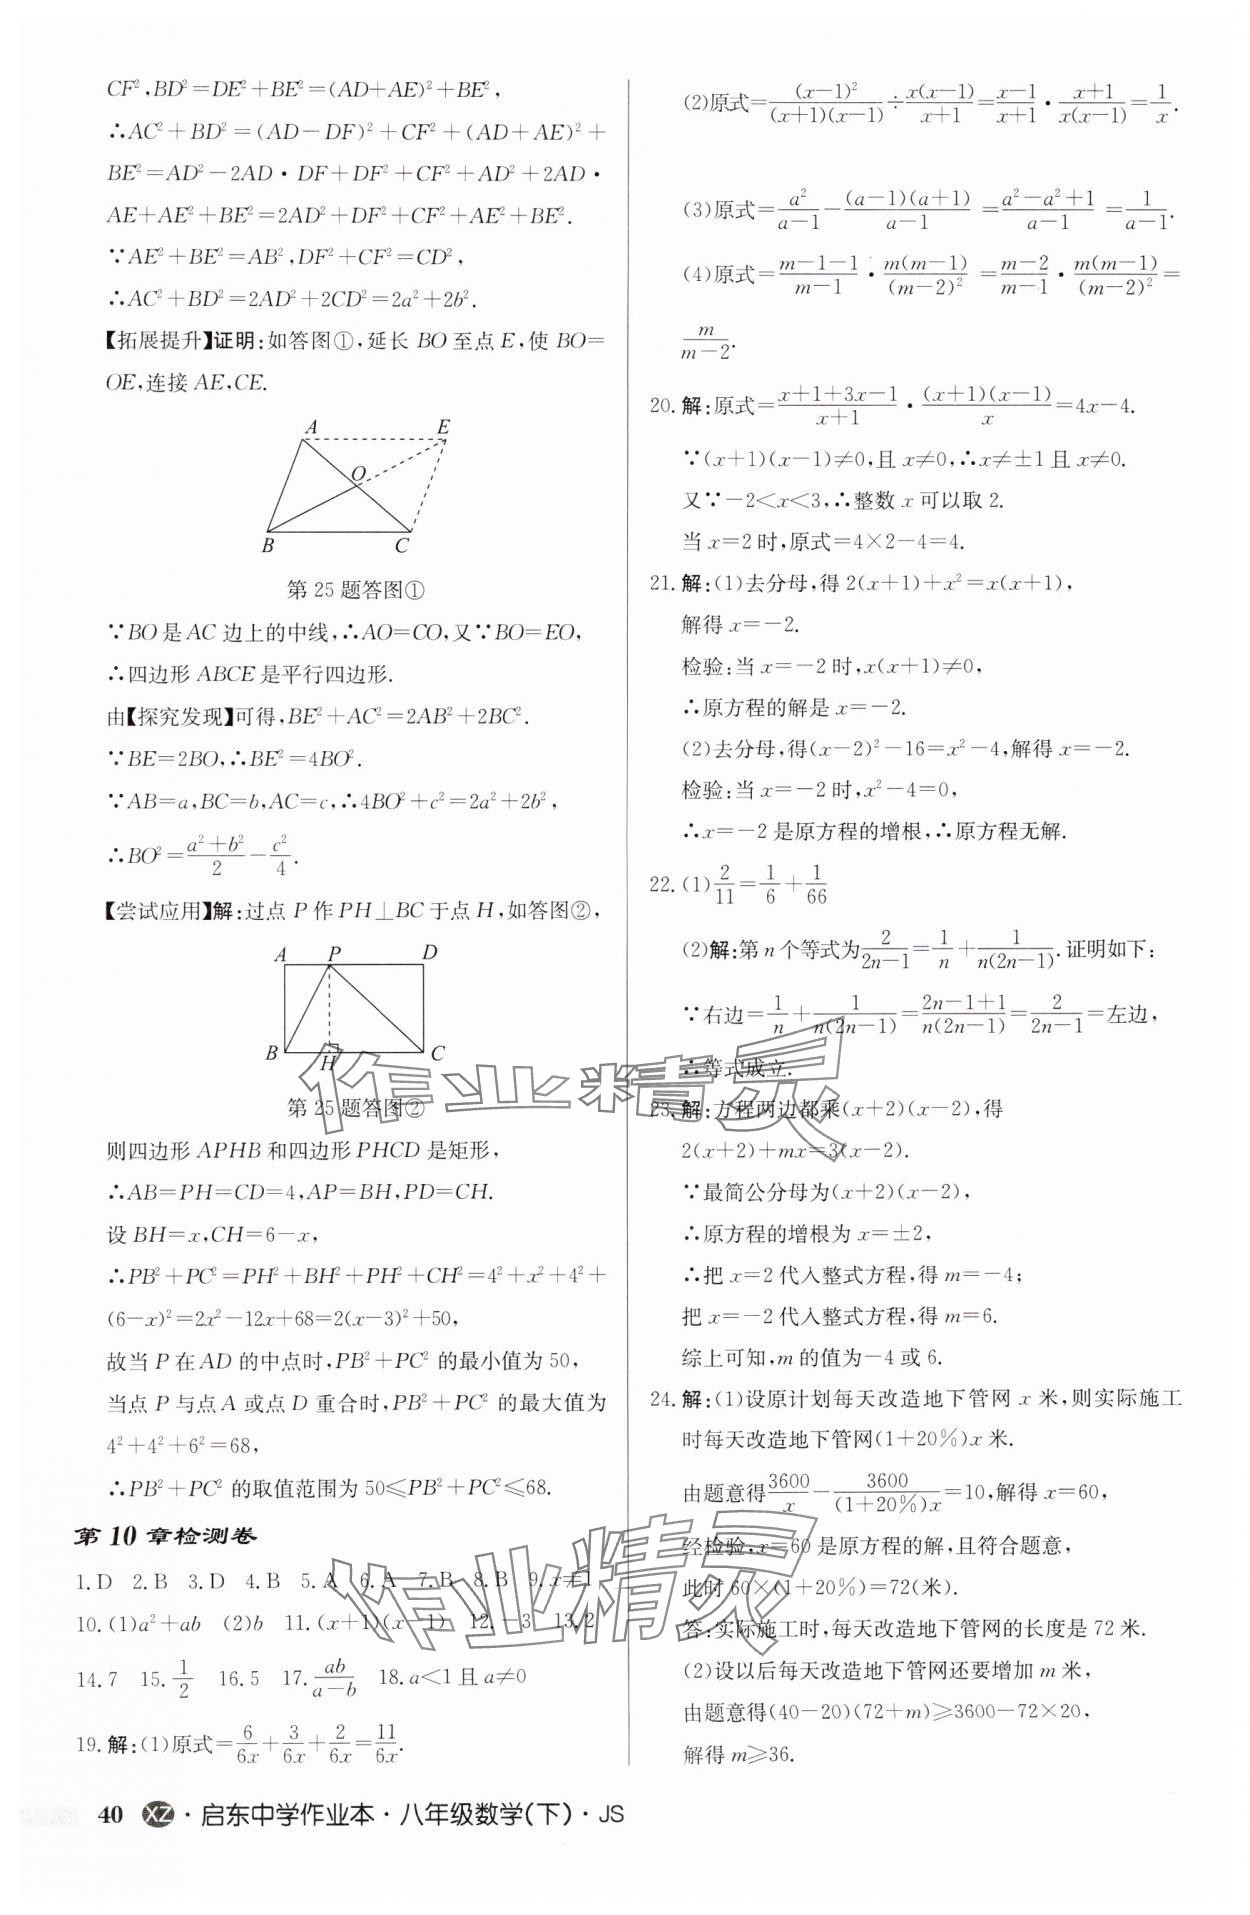 CF²,BD²=DE²+BE²=(AD+AE)²+BE²,
∴AC²+BD²=(AD-DF)²+CF²+(AD+AE)²+
BE²=AD²-2AD·DF+DF²+CF²+AD²+2AD·
AE+AE²+BE²=2AD²+DF²+CF²+AE²+BE².
∵AE²+BE²=AB²,DF²+CF²=CD²,
∴AC²+BD²=2AD²+2CD²=2a²+2b².
【拓展提升】证明:如答图①,延长 BO 至点 E,使 BO=
OE,连接 AE,CE.
A E
O
B C
第 25 题答图①
∵BO 是 AC 边上的中线,∴AO=CO,又∵BO=EO,
∴四边形 ABCE 是平行四边形.
由【探究发现】可得,BE²+AC²=2AB²+2BC².
∵BE=2BO,∴BE²=4BO².
∵AB=a,BC=b,AC=c,∴4BO²+c²=2a²+2b²,
∴BO²=(a²+b²)/2-c²/4.
【尝试应用】解:过点 P 作 PH⊥BC 于点 H,如答图②,
A P D
B H C
第 25 题答图②
则四边形 APHB 和四边形 PHCD 是矩形,
∴AB=PH=CD=4,AP=BH,PD=CH.
设 BH=x,CH=6-x,
∴PB²+PC²=PH²+BH²+PH²+CH²=4²+x²+4²+
(6-x)²=2x²-12x+68=2(x-3)²+50,
故当 P 在 AD 的中点时,PB²+PC² 的最小值为 50,
当点 P 与点 A 或点 D 重合时,PB²+PC² 的最大值为
4²+4²+6²=68,
∴PB²+PC² 的取值范围为 50≤PB²+PC²≤68.
第 10 章检测卷
1.D 2.B 3.D 4.B 5.A 6.A 7.B 8.B 9.x≠1
10.(1)a²+ab (2)b 11.(x+1)(x-1) 12.-3 13.2
14.7 15.1/2 16.5 17.ab/(a-b) 18.a<1 且 a≠0
19.解:(1)原式=6/6x+3/6x+2/6x=11/6x.
(2)原式=(x-1)²/(x+1)(x-1)÷x(x-1)/(x+1)=(x-1)/(x+1)·(x+1)/x(x-1)=1/x.
(3)原式=a²/(a-1)-(a-1)(a+1)/(a-1)=(a²-a²+1)/(a-1)=1/(a-1).
(4)原式=(m-1-1)/(m-1)·m(m-1)/(m-2)²=(m-2)/(m-1)·m(m-1)/(m-2)²=
m/(m-2).
20.解:原式=(x+1+3x-1)/(x+1)·(x+1)(x-1)/x=4x-4.
∵(x+1)(x-1)≠0,且 x≠0,∴x≠±1 且 x≠0.
又∵-2<x<3,∴整数 x 可以取 2.
当 x=2 时,原式=4×2-4=4.
21.解:(1)去分母,得 2(x+1)+x²=x(x+1),
解得 x=-2.
检验:当 x=-2 时,x(x+1)≠0,
∴原方程的解是 x=-2.
(2)去分母,得(x-2)²-16=x²-4,解得 x=-2.
检验:当 x=-2 时,x²-4=0,
∴x=-2 是原方程的增根,∴原方程无解.
22.(1)2/11=1/6+1/66
(2)解:第 n 个等式为2/(2n-1)=1/n+1/n(2n-1).证明如下:
∵右边=1/n+1/n(2n-1)=(2n-1+1)/n(2n-1)=2/(2n-1)=左边,
∴等式成立.
23.解:方程两边都乘(x+2)(x-2),得
2(x+2)+mx=3(x-2).
∵最简公分母为(x+2)(x-2),
∴原方程的增根为 x=±2,
∴把 x=2 代入整式方程,得 m=-4;
把 x=-2 代入整式方程,得 m=6.
综上可知,m 的值为-4 或 6.
24.解:(1)设原计划每天改造地下管网 x 米,则实际施工
时每天改造地下管网(1+20%)x 米.
由题意得3600/x-3600/(1+20%)x=10,解得 x=60,
经检验,x=60 是原方程的解,且符合题意,
此时 60×(1+20%)=72(米).
答:实际施工时,每天改造地下管网的长度是 72 米.
(2)设以后每天改造地下管网还要增加 m 米,
由题意得(40-20)(72+m)≥3600-72×20,
解得 m≥36.
作业精灵
作业精灵
40 XZ·启东中学作业本·八年级数学(下)·JS